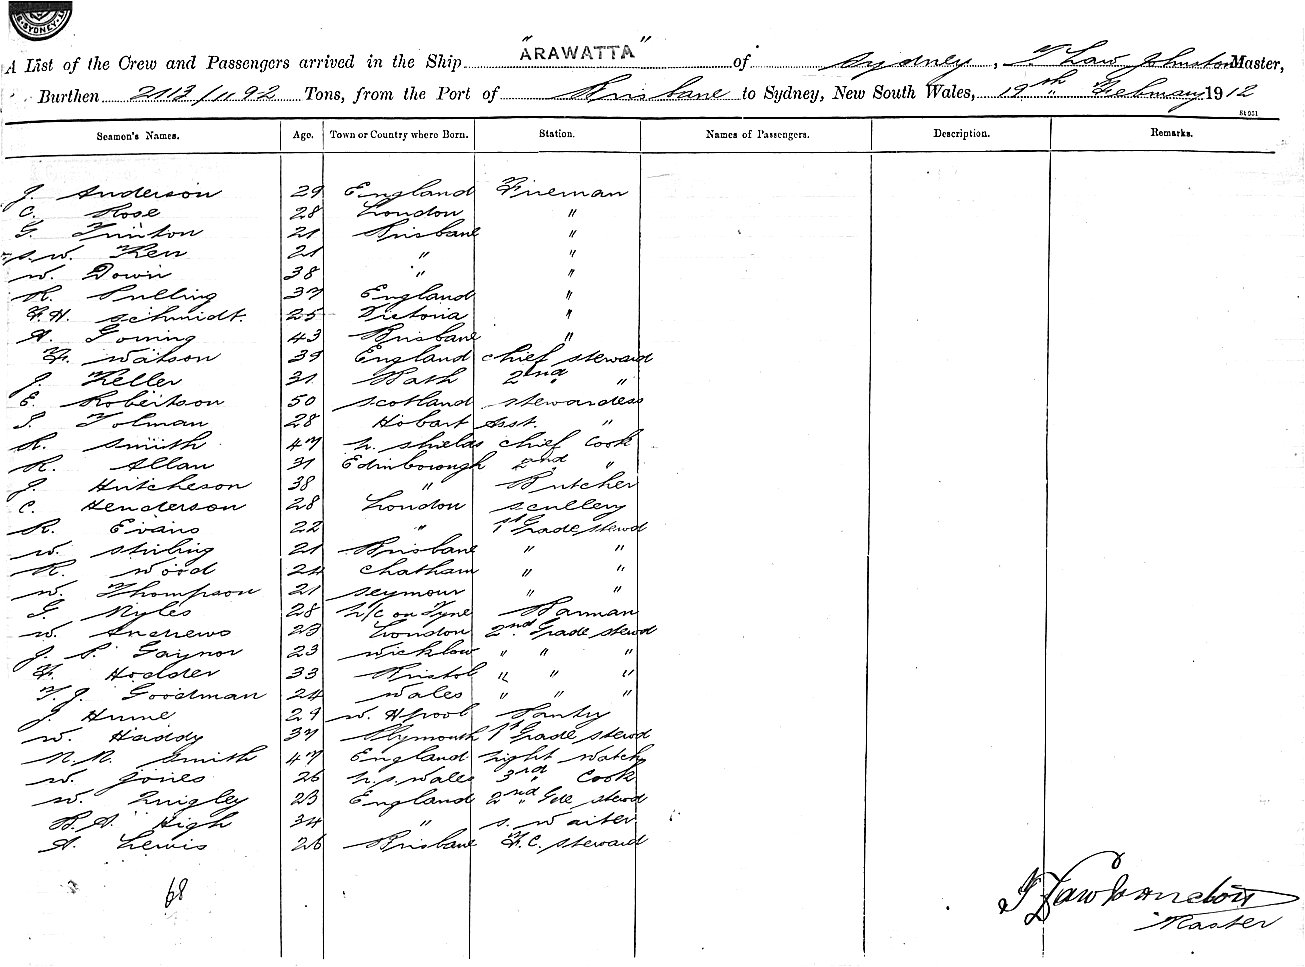 SYDNEY
A List of the Crew and Passengers arrived in the Ship "ARAWATTA" of Sydney, T Law Johnston Master,
Burthen 2113/1192 Tons, from the Port of Brisbane to Sydney, New South Wales, 19th February 1912
St 951
Seamen's Names. Age. Town or Country where Born. Station. Names of Passengers. Description. Remarks.
J. Anderson 29 England Fireman
C. Rose 28 London "
G. Trinton 21 Brisbane "
W. Kerr 21 " "
W. Down 38 " "
R. Pulling 37 England "
F.H. Schmidt. 25 Victoria "
A. Goining 43 Brisbane "
F. Watson 39 England Chief Steward
J. Keller 31 Bath 2nd "
E. Robertson 50 Scotland Stewardess
S. Tolman 28 Hobart Asst. "
R. Smith 47 N. Shields Chief Cook
R. Allan 31 Edinborough 2nd "
J. Hutcheson 38 " Butcher
C. Henderson 28 London Scullery
R. Evans 22 " 1st Grade Stewd
W. Stirling 21 Brisbane " "
R. Wood 24 Chatham " "
W. Thompson 21 Seymour " "
G. Myles 28 N/C on Tyne Barman
W. Andrews 23 London 2nd Grade Stewd
J. P. Gaynor 23 Wicklow " " "
F. Hodder 33 Bristol " " "
T. J. Goodman 24 Wales " " "
J. Hume 29 W. H'pool Pantry
W. Haddy 37 Plymouth 1st Grade Stewd
N. N. Smith 47 England Night Watch
W. Jones 26 N. S. Wales 3rd Cook
W. Quigley 23 England 2nd Gde Stewd
B. A. High 34 " S. Waiter
A. Lewis 26 Brisbane F. C. Steward
68
T Law Johnston
Master